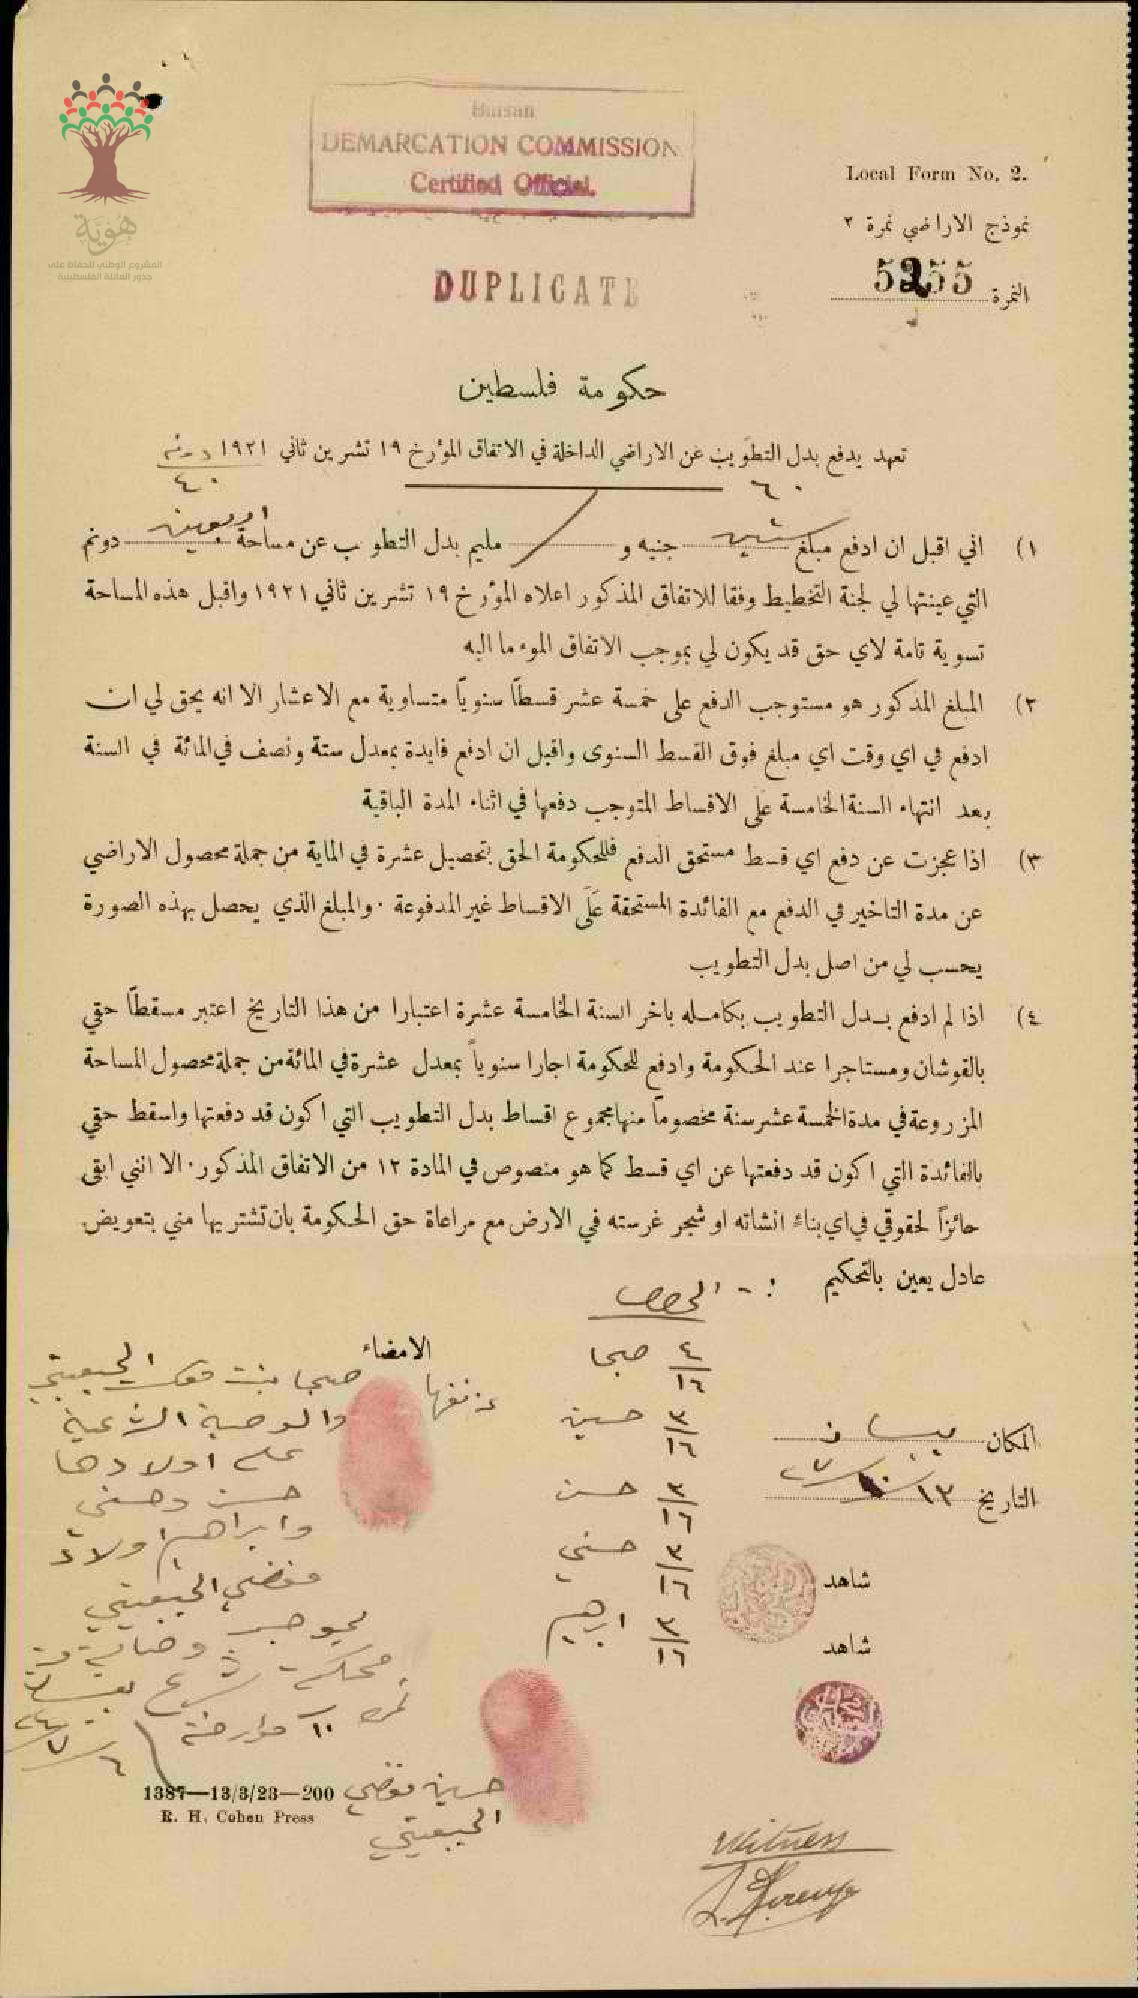 Baisan
DEMARCATION COMMISSION
Certified Official.
Local Form No. 2.
نموذج الاراضي نمرة ٢
هُوِيَّة
المشروع الوطني للحفاظ على
جذور العائلة الفلسطينية
النمرة 5255
DUPLICATE
حكومة فلسطين
تعهد يدفع بدل التطويب عن الاراضي الداخلة في الاتفاق المؤرخ ١٩ تشرين ثاني ١٩٢١ دونم
٦٠ ٤٠
١) اني اقبل ان ادفع مبلغ ستين جنيه و مليم بدل التطويب عن مساحة اربعين دونم
التي عينتها لي لجنة التخطيط وفقا للاتفاق المذكور اعلاه المؤرخ ١٩ تشرين ثاني ١٩٢١ واقبل هذه المساحة
تسوية تامة لاي حق قد يكون لي بموجب الاتفاق الموء ما اليه
٢) المبلغ المذكور هو مستوجب الدفع على خمسة عشر قسطاً سنوياً متساوية مع الاعشار الا انه يحق لي ان
ادفع في اي وقت اي مبلغ فوق القسط السنوى واقبل ان ادفع فايدة بمعدل ستة ونصف في المائة في السنة
بعد انتهاء السنة الخامسة على الاقساط المتوجب دفعها في اثناء المدة الباقية
٣) اذا عجزت عن دفع اي قسط مستحق الدفع فللحكومة الحق بتحصيل عشرة في الماية من جملة محصول الاراضي
عن مدة التاخير في الدفع مع الفائدة المستحقة عَلَى الاقساط غير المدفوعة . والمبلغ الذي يحصل بهذه الصورة
يحسب لي من اصل بدل التطويب
٤) اذا لم ادفع بدل التطويب بكامله باخر السنة الخامسة عشرة اعتبارا من هذا التاريخ اعتبر مسقطاً حقي
بالقوشان ومستاجرا عند الحكومة وادفع للحكومة اجارا سنوياً بمعدل عشرة في المائة من جملة محصول المساحة
المزروعة في مدة الخمسة عشر سنة مخصوماً منها مجموع اقساط بدل التطويب التي اكون قد دفعتها واسقط حقي
بالفائدة التي اكون قد دفعتها عن اي قسط كما هو منصوص في المادة ١٢ من الاتفاق المذكور . الا انني ابقى
حائزاً لحقوقي في اي بناء انشاته او شجر غرسته في الارض مع مراعاة حق الحكومة بان تشتريها مني بتعويض
عادل يعين بالتحكيم
الحصص
٤/١٦ صبحا
٣/١٦ حسين
٣/١٦ حسن
٣/١٦ حسني
٣/١٦ ابرهيم
الامضاء
عن نفسها
صبحا بنت
والوصية الشرعية
على اولادها
حسن وحسني
وابراهيم اولاد
بموجب وصاية من
محكمة شرع بيسان
نمره ١١ مؤرخة
٦/٧/
المكان بيسان
التاريخ ١٣/١٠/٢٧
شاهد
شاهد
حسين
1387—13/3/23—200
R. H. Cohen Press
witness